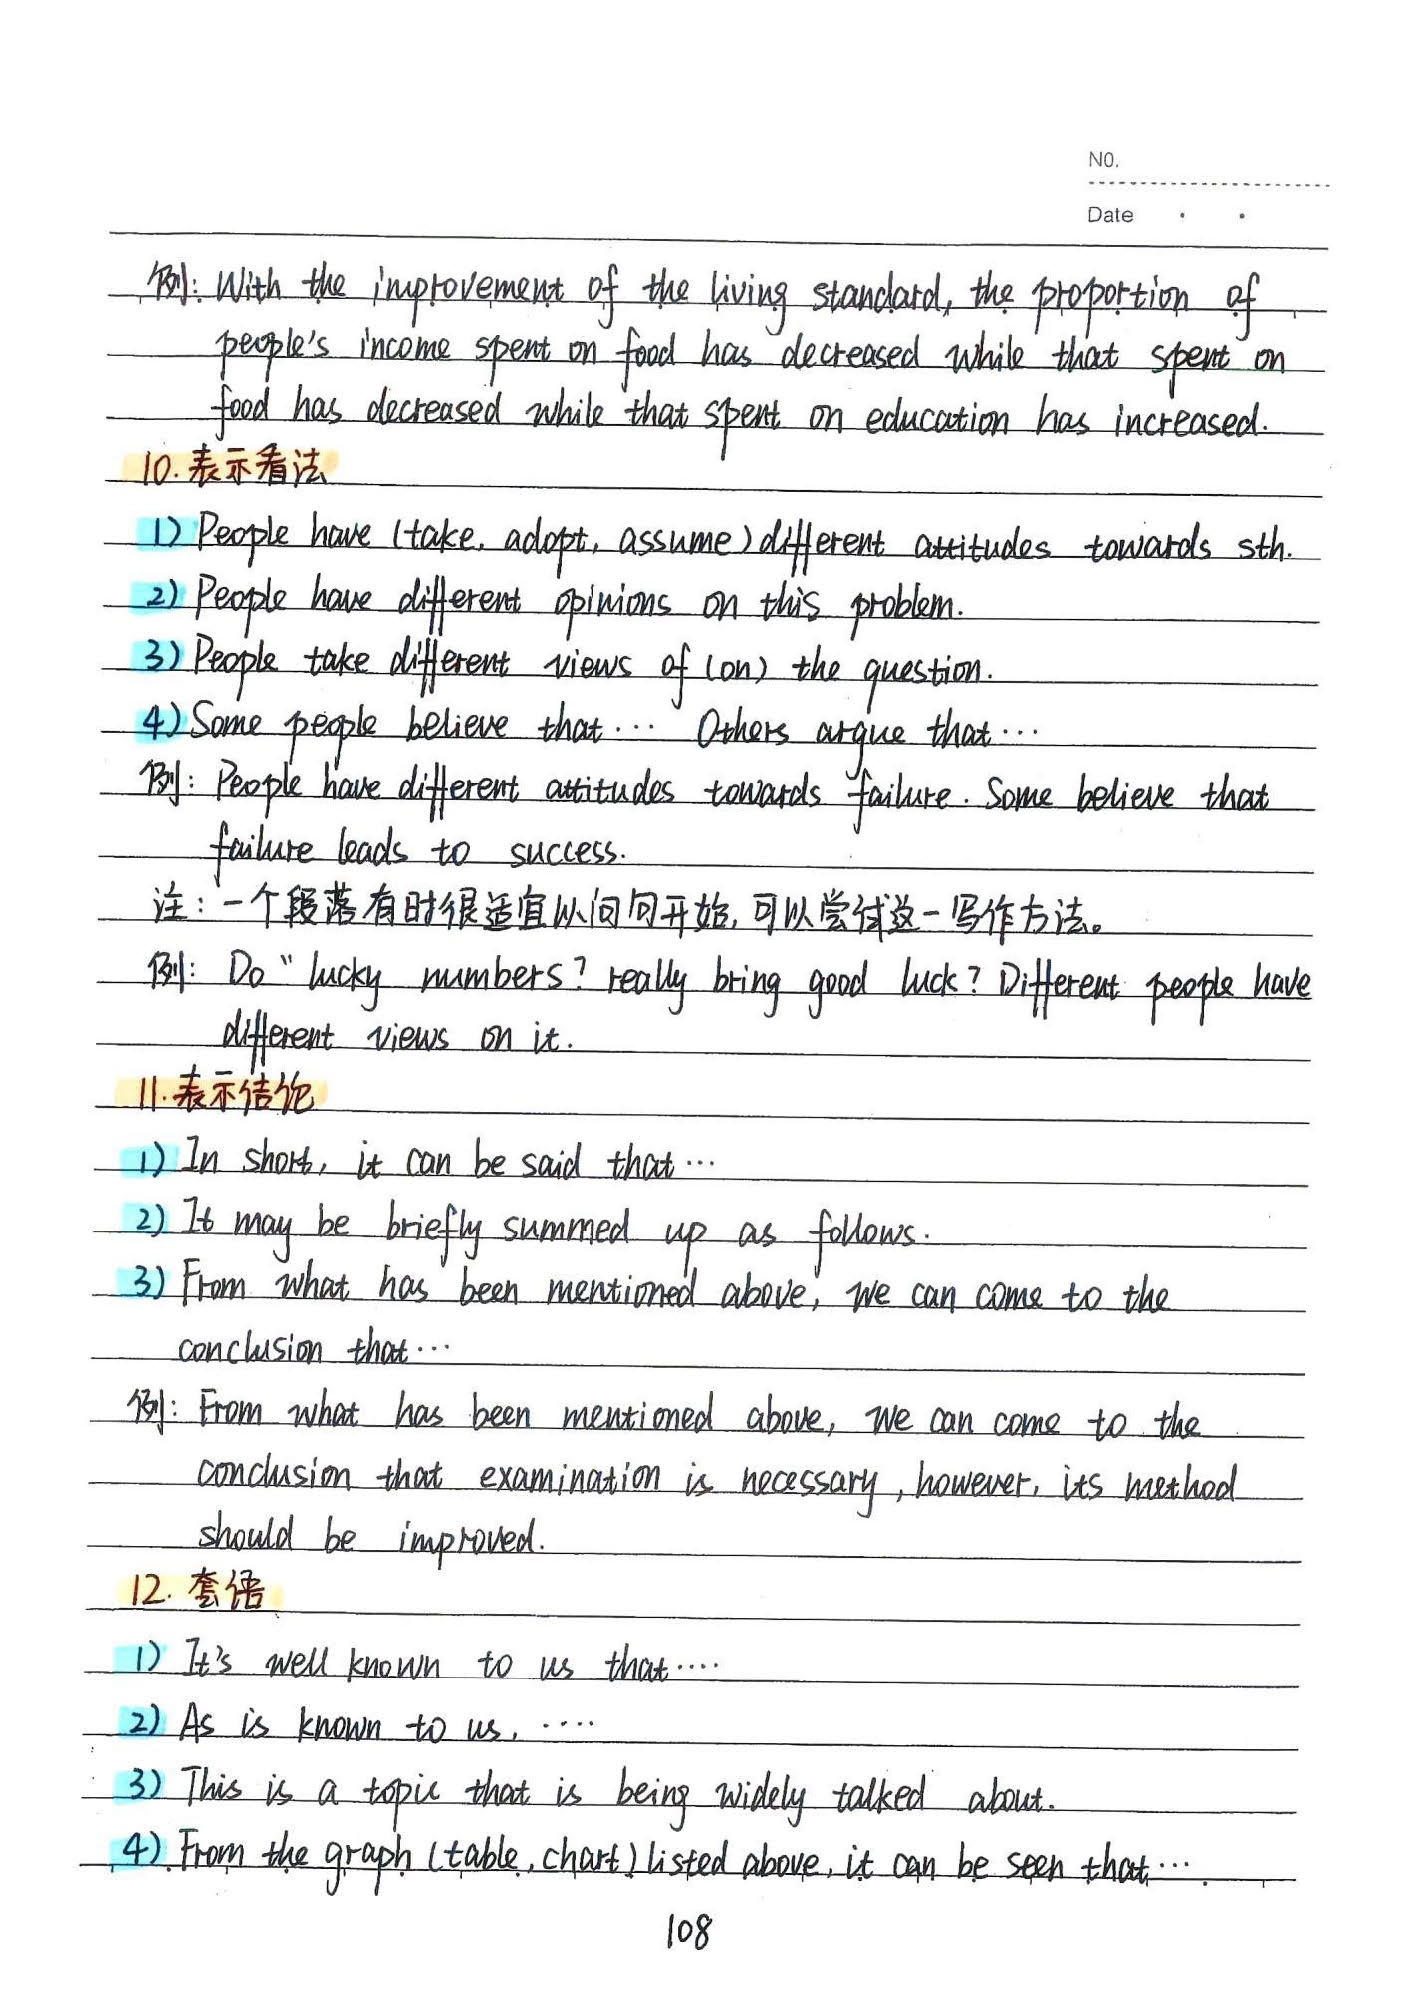 NO.
Date
例: With the improvement of the living standard, the proportion of
people's income spent on food has decreased while that spent on
food has decreased while that spent on education has increased.
10. 表示看法
1) People have (take, adopt, assume) different attitudes towards sth.
2) People have different opinions on this problem.
3) People take different views of (on) the question.
4) Some people believe that… Others argue that…
例: People have different attitudes towards failure. Some believe that
failure leads to success.
注: 一个段落有时很适宜以问句开始, 可以尝试这一写作方法。
例: Do "lucky numbers? really bring good luck? Different people have
different views on it.
11. 表示结论
1) In short, it can be said that…
2) It may be briefly summed up as follows.
3) From what has been mentioned above, we can come to the
conclusion that…
例: From what has been mentioned above, we can come to the
conclusion that examination is necessary, however, its method
should be improved.
12. 套语
1) It's well known to us that….
2) As is known to us, ….
3) This is a topic that is being widely talked about.
4) From the graph (table, chart) listed above, it can be seen that…
108